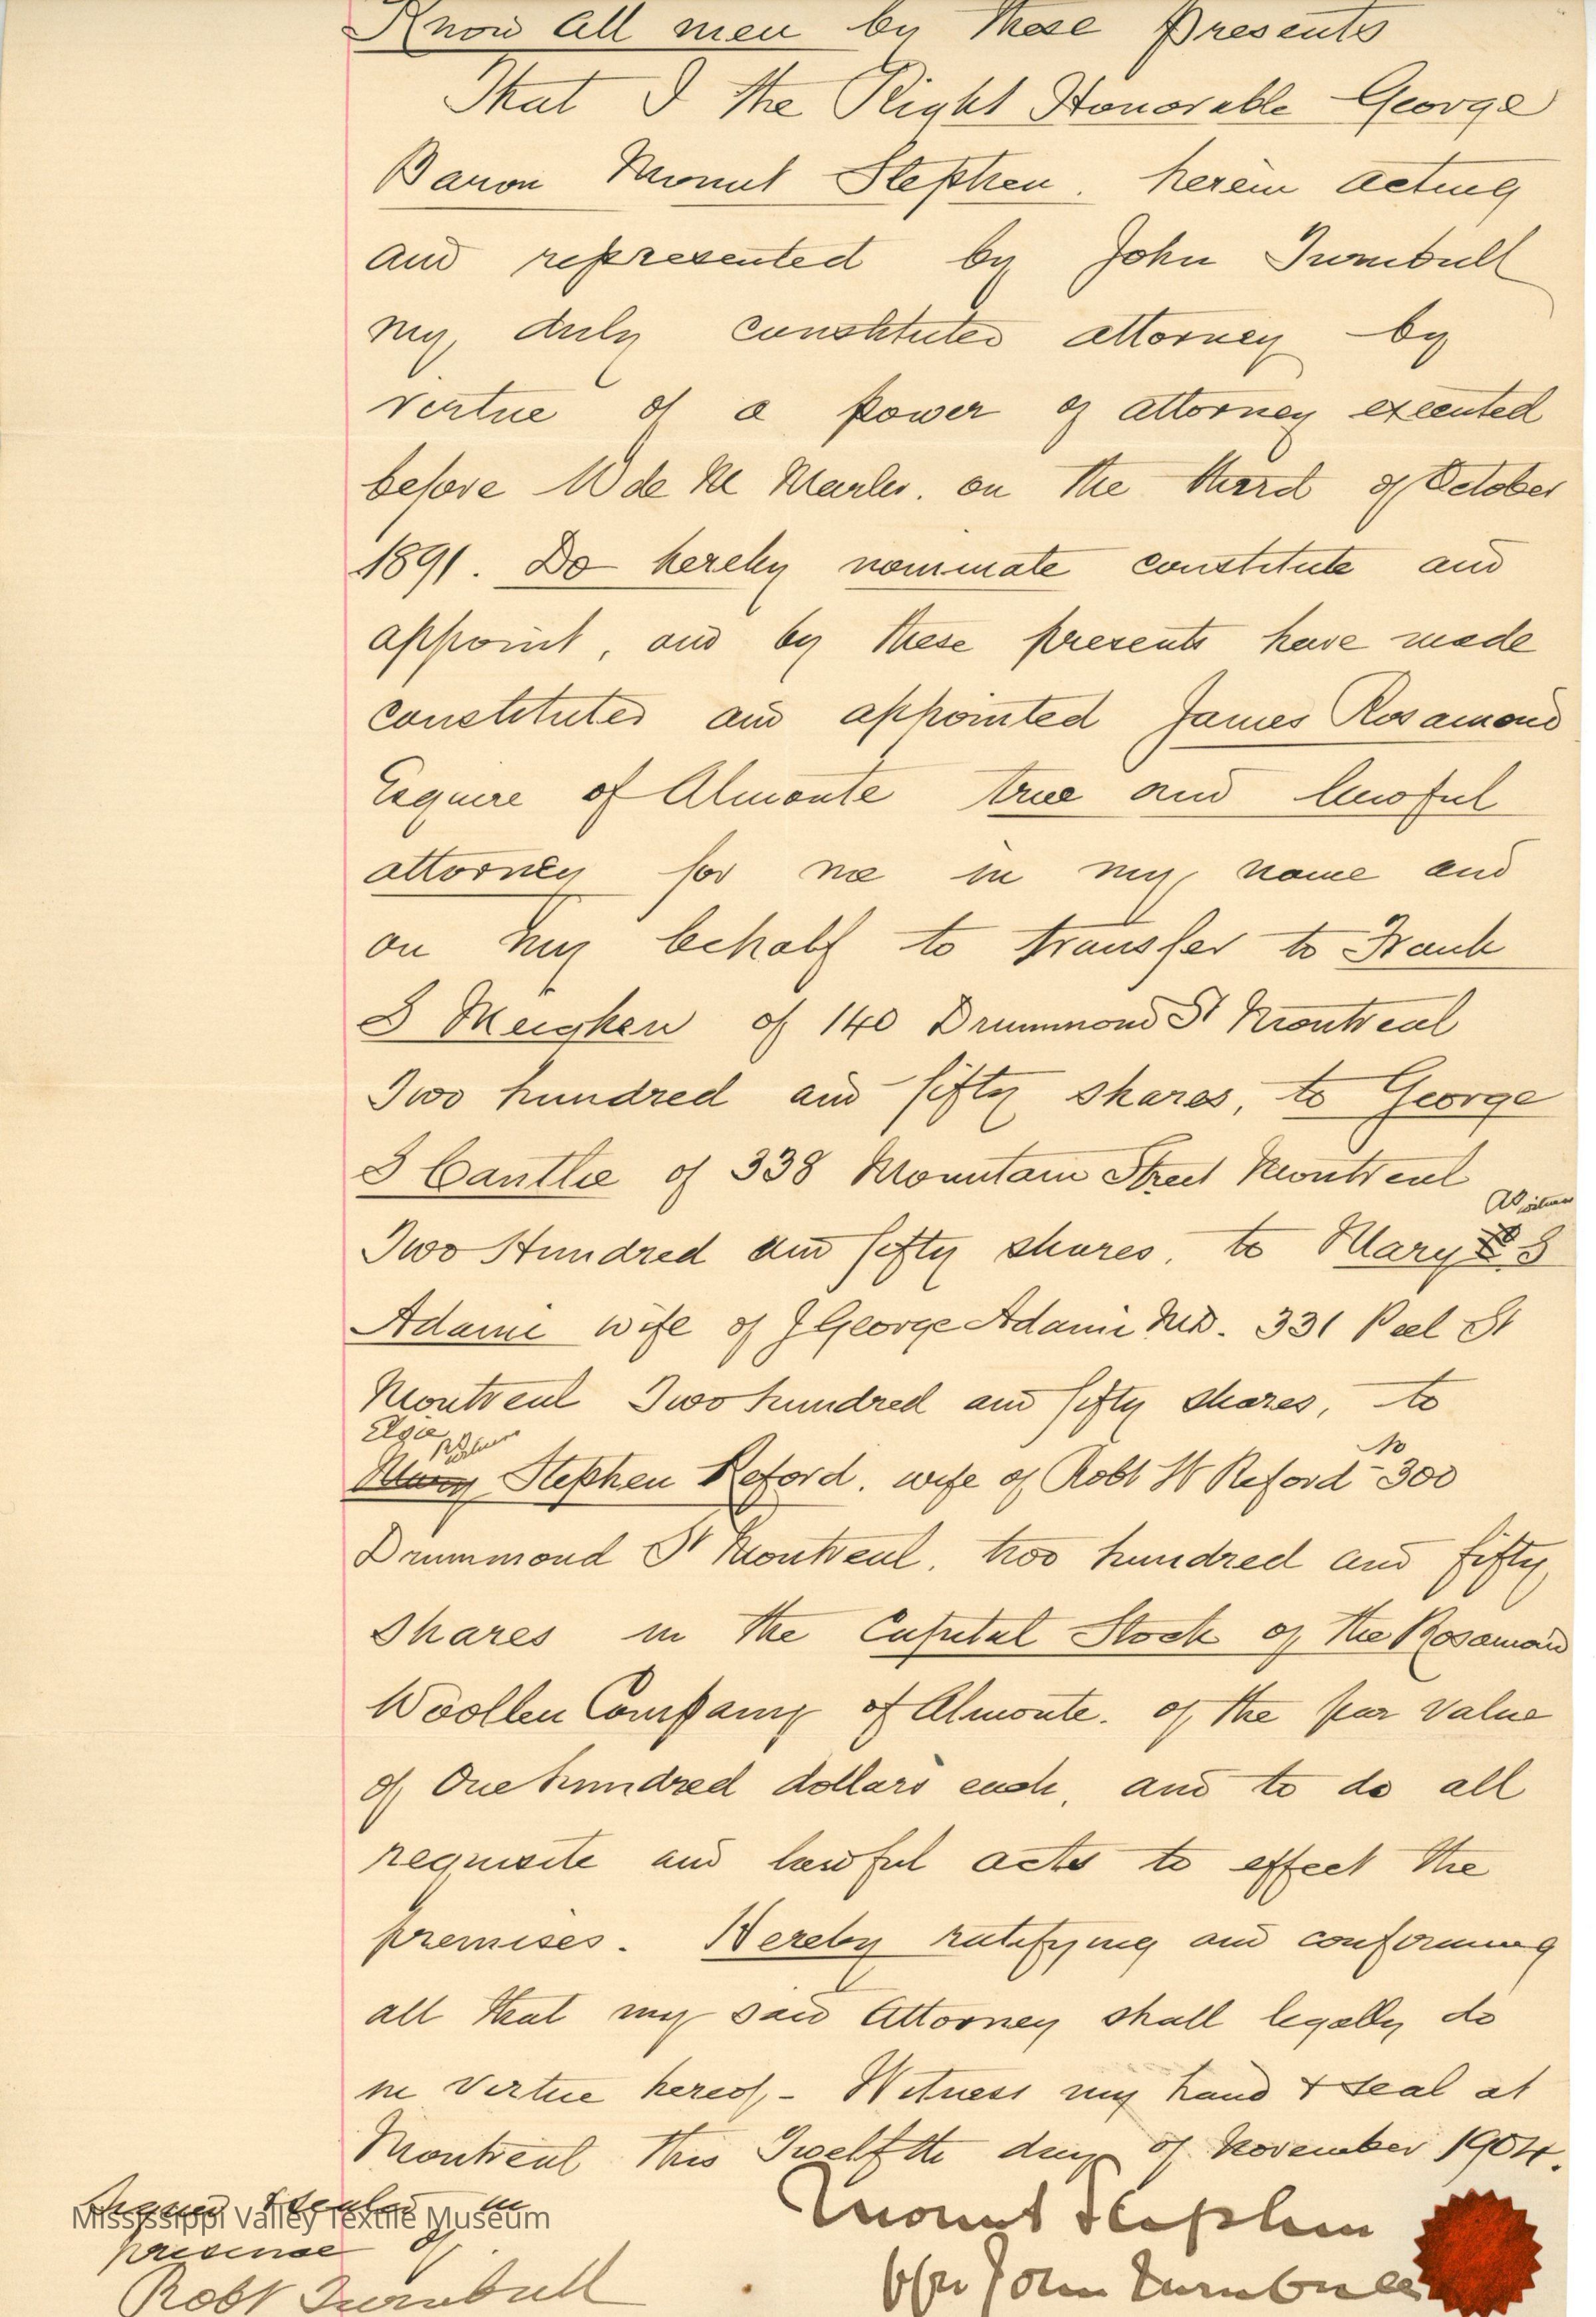 Know all men by these Presents
That I the Right Honorable George
Baron Mount Stephen. herein acting
and represented by John Turnbull
my duly constituted attorney by
virtue of a Power of attorney executed
before W de M Marler. on the third of October
1891. Do hereby nominate constitute and
appoint, and by these presents have made
constituted and appointed James Rosamond
Esquire of Almonte true and lawful
attorney for me in my name and
on my behalf to transfer to Frank
S Meighen of 140 Drummond St Montreal
Two hundred and fifty shares, to George
S Cantlie of 338 Mountain Street Montreal
Two Hundred and fifty shares. to Mary S
Adami wife of J George Adami M.D. 331 Peel St
Montreal Two hundred and fifty shares, to
Elsie
Mary Stephen Reford. wife of Robt W Reford - No 300
Drummond St Montreal. two hundred and fifty
Shares in the Capital Stock of the Rosamond
Woollen Company of Almonte. of the par value
of One hundred dollars each, and to do all
requisite and lawful acts to effect the
premises. Hereby ratifying and confirming
all that my said Attorney shall legally do
in virtue hereof - Witness my hand & seal at
Montreal this Twelfth day of November 1904.
Signed & Sealed in
presence of
Mississippi Valley Textile Museum
Robt Turnbull
Mount Stephen
John Turnbull